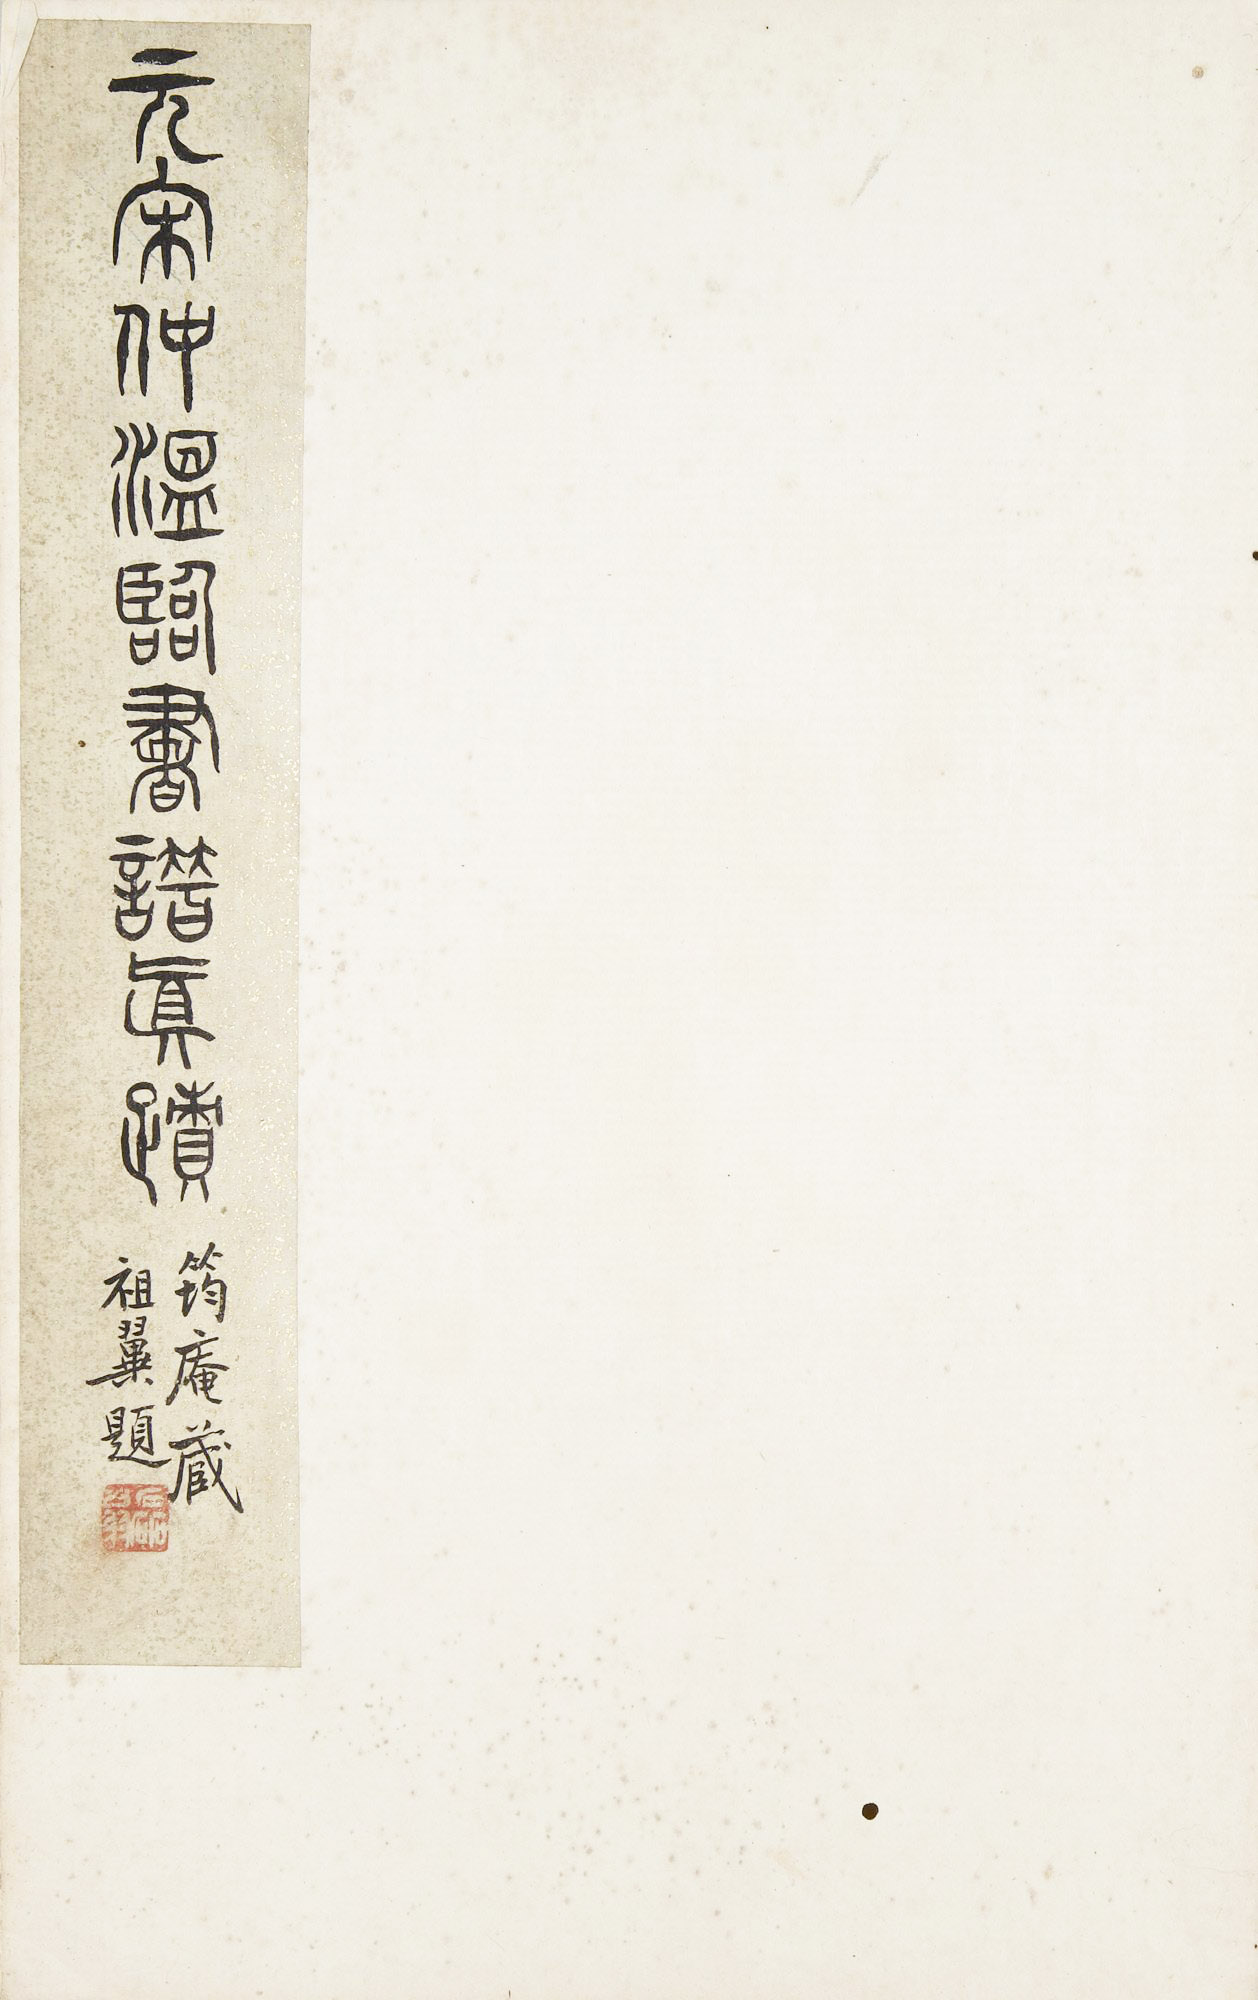 元宋仲溫臨書譜真蹟
筠庵藏
祖翼題